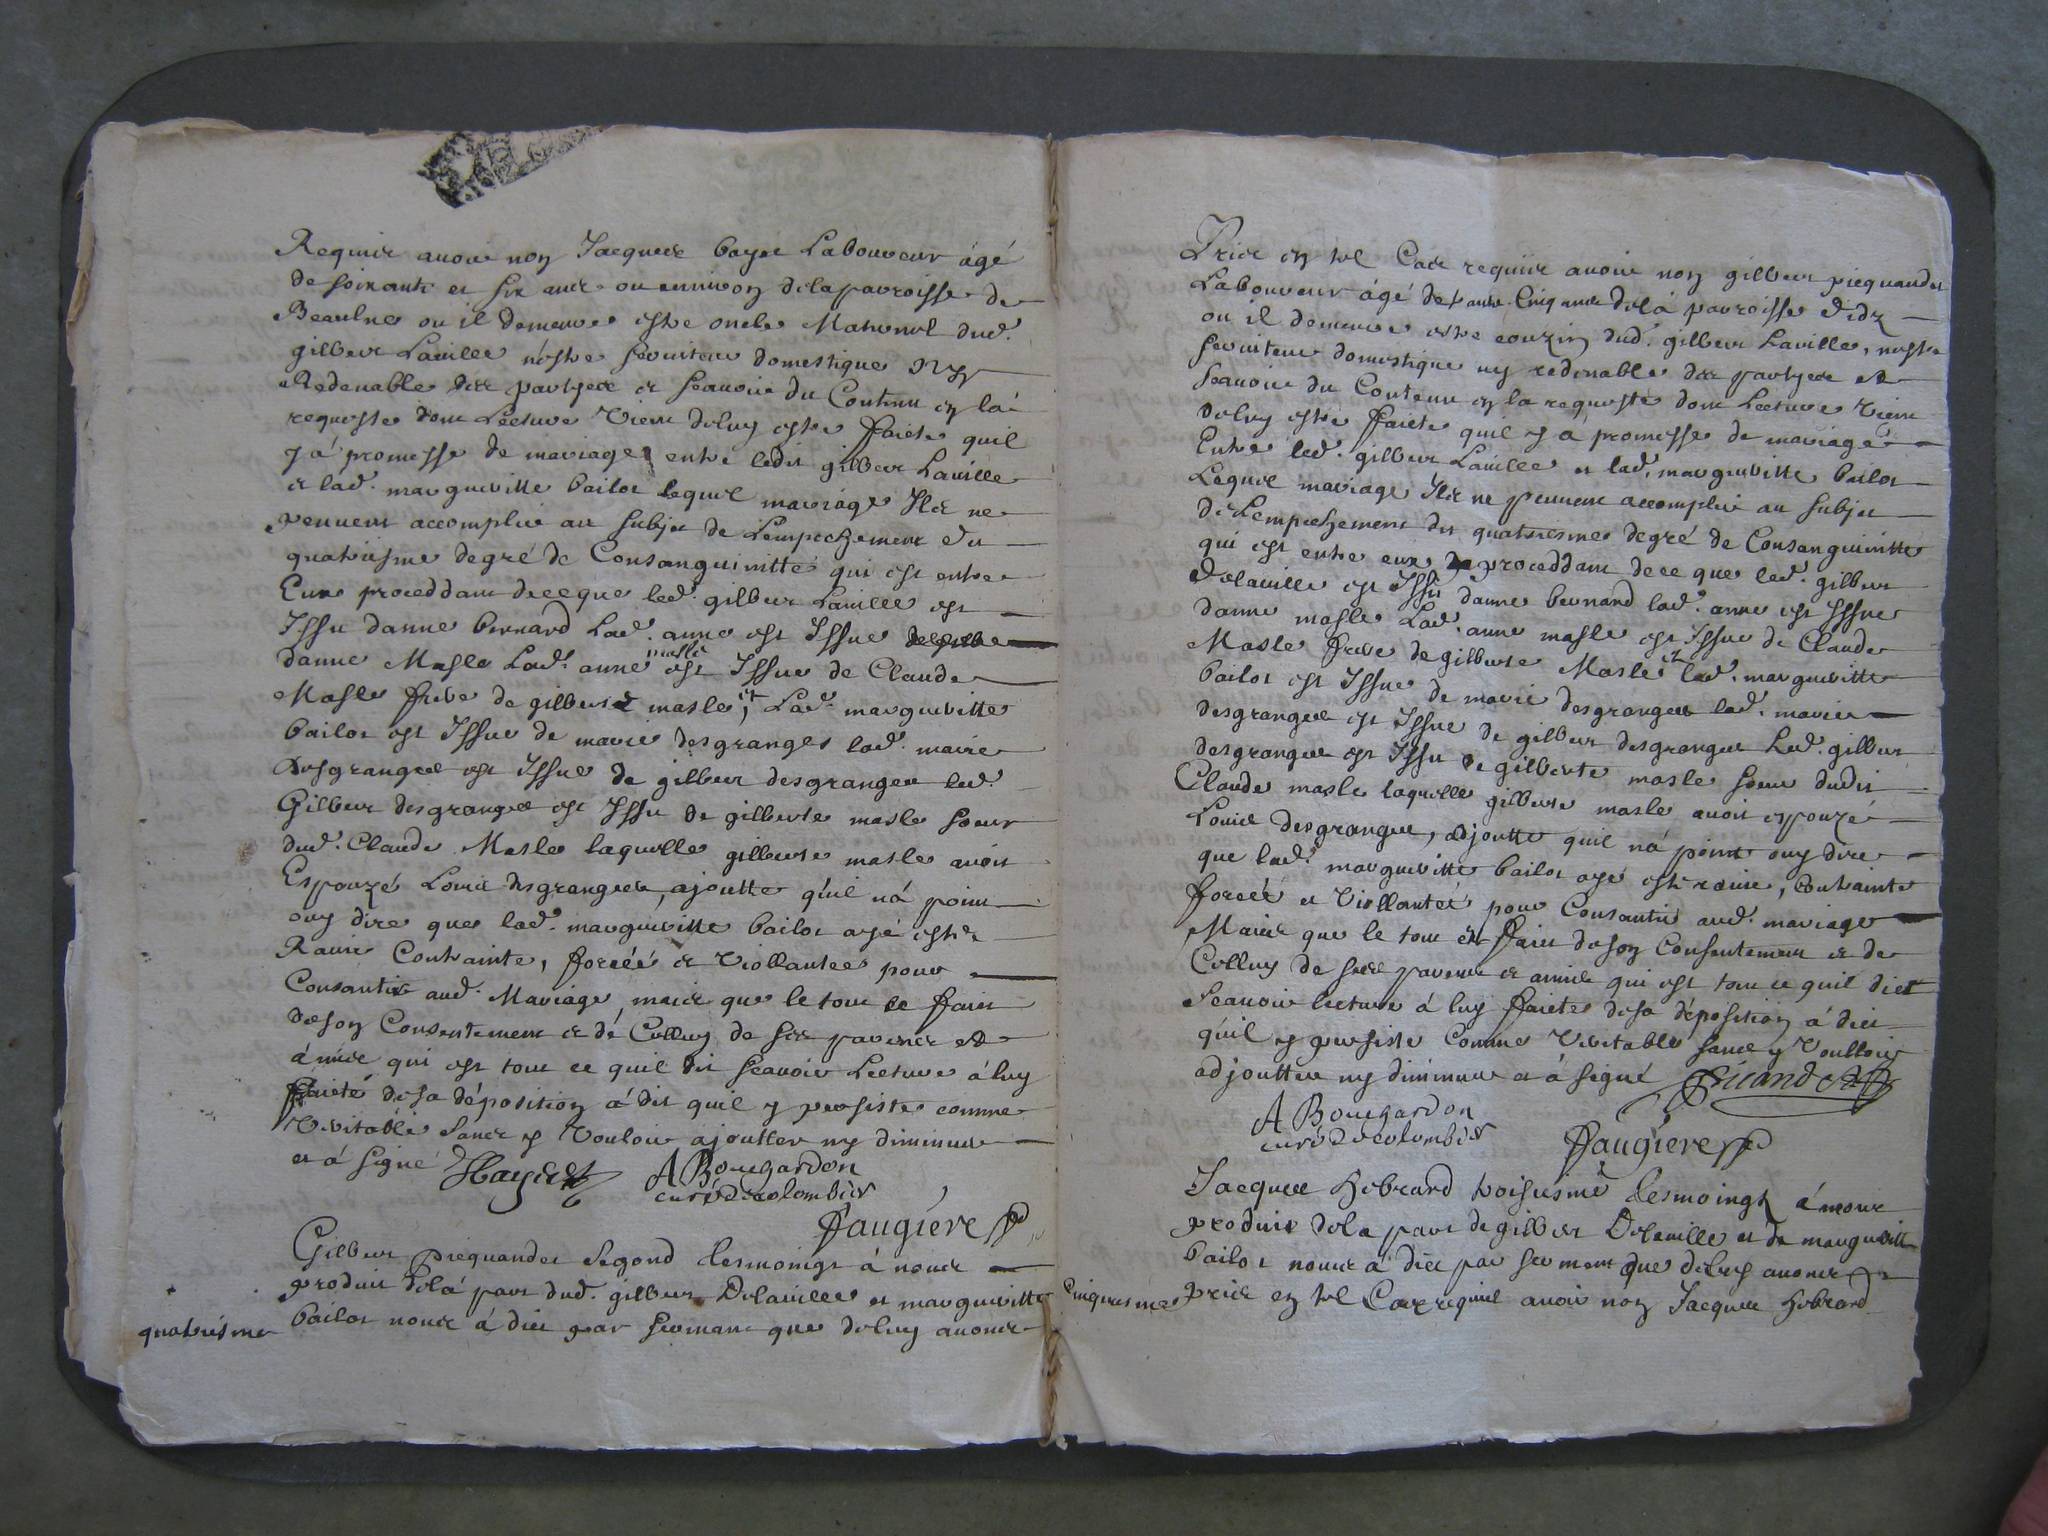 Requis avoir noy Jacques bayet Laboureur âgé
de soixante et six ans ou environ dela parroisse de
Beaulne ou il demeure estre oncle Maternel dud.
gilbert Laville n'estre serviteur domestique Ny
Redenable des partyes et scavoir du Contenu en la
requeste dont Lecture Vient deluy estre ffaicte quil
y â promesse de mariage entre ledit gilbert Laville
et lad. margueritte bailot lequel mariage Ils ne
peuvent accomplir au subjet de Lempechement du
quatriesme degré de Consanguinitté qui est entre
Eux proceddant decequé led. gilbert Laville est
Issu danne bernard Lad. anne est Issue
danne Masle Lad. anne masle est Issue de Claude
Masle frere de gilberte masle, et Lad. margueritte
bailot est Issue de marie desgranges lad. marie
desgranges est Issue de gilbert desgranges led.
Gilbert desgranges est Issu de gilberte masle soeur
dud. Claude Masle laquelle gilberte masle avoit
Espouzé Louis desgranges, ajoutte quil nâ point
ouy dire que lad. margueritte bailot ayé estée
Ravie Contrainte, forcéé et Viollantée pour
Consantir aud. Mariage, mais que le tout ce ffait
deson Consentement et dé Celluy de ses parens et
âmis qui est tout ce quil dit scavoir Lecture â luy
ffaicté desa déposition â dit quil y persiste comme
Veritable sans y Vouloir ajoutter ny diminuer
et â signé Bayet A Bougardon
curé decolombier
ffaugiere
Gilbert piequandet segond tesmoingt â nous
produit delâ part dud. gilbert Delaville et margueritte
quatriesme bailot nous â dit par serment que deluy avons
Pris en tel Cas requis avoir noy gilbert piequandet
Laboureur âgé de trante Cinq ans delâ parroisse didz
ou il demeure estre couziny dud. gilbert Laville, nestre
serviteur domestique ny redenable des partyes et
scavoir du Contenu en la requeste dont Lecture Vient
deluy estre ffaicte quil y â promesse de mariage
Entre led. gilbert Laville et lad. margueritte bailot
Lequel mariage Ils ne peuvent accomplir au subjet
de Lempechement du quatriesme degré de Consanguinitté
qui est entre eux proceddant de ce que led. gilbert
Delaville est Issu danne bernard lad. anne est Issue
danne masle Lad. anne masle est Issue de Claude
Masle frere de gilberte Masle et lad. margueritte
bailot est Issue de marie desgranges lad. marie
desgranges est Issue de gilbert desgranges Led. gilbert
desgranges est Issu de gilberte masle soeur dudit
Claude masle laquelle gilberte masle avoit espouzé
Louis desgranges, adjoutte quil nâ point ouy dire
que lad. margueritte bailot ayé esté ravie, Contrainte
forcéé et Viollantéé pour Consantir aud. mariage
Mais que le tout est ffait deson Consentement et de
Celluy de ses parens et amis qui est tout ce quil dict
scavoir lecture â luy ffaicte desa déposition â dict
quil y persiste Comme Veritable sans y Voulloir
adjoutter ny diminuer et â signé
A Bougardon
curé decolombier
ffaugiere
Jacques hebrard troisiesme tesmoingt ânous
produit dela part de gilbert Delaville et de margueritte
bailot nous â dict par serment que deluy avons
Cinquiesme pris en tel Cas requis avoir noy Jacques hebrard